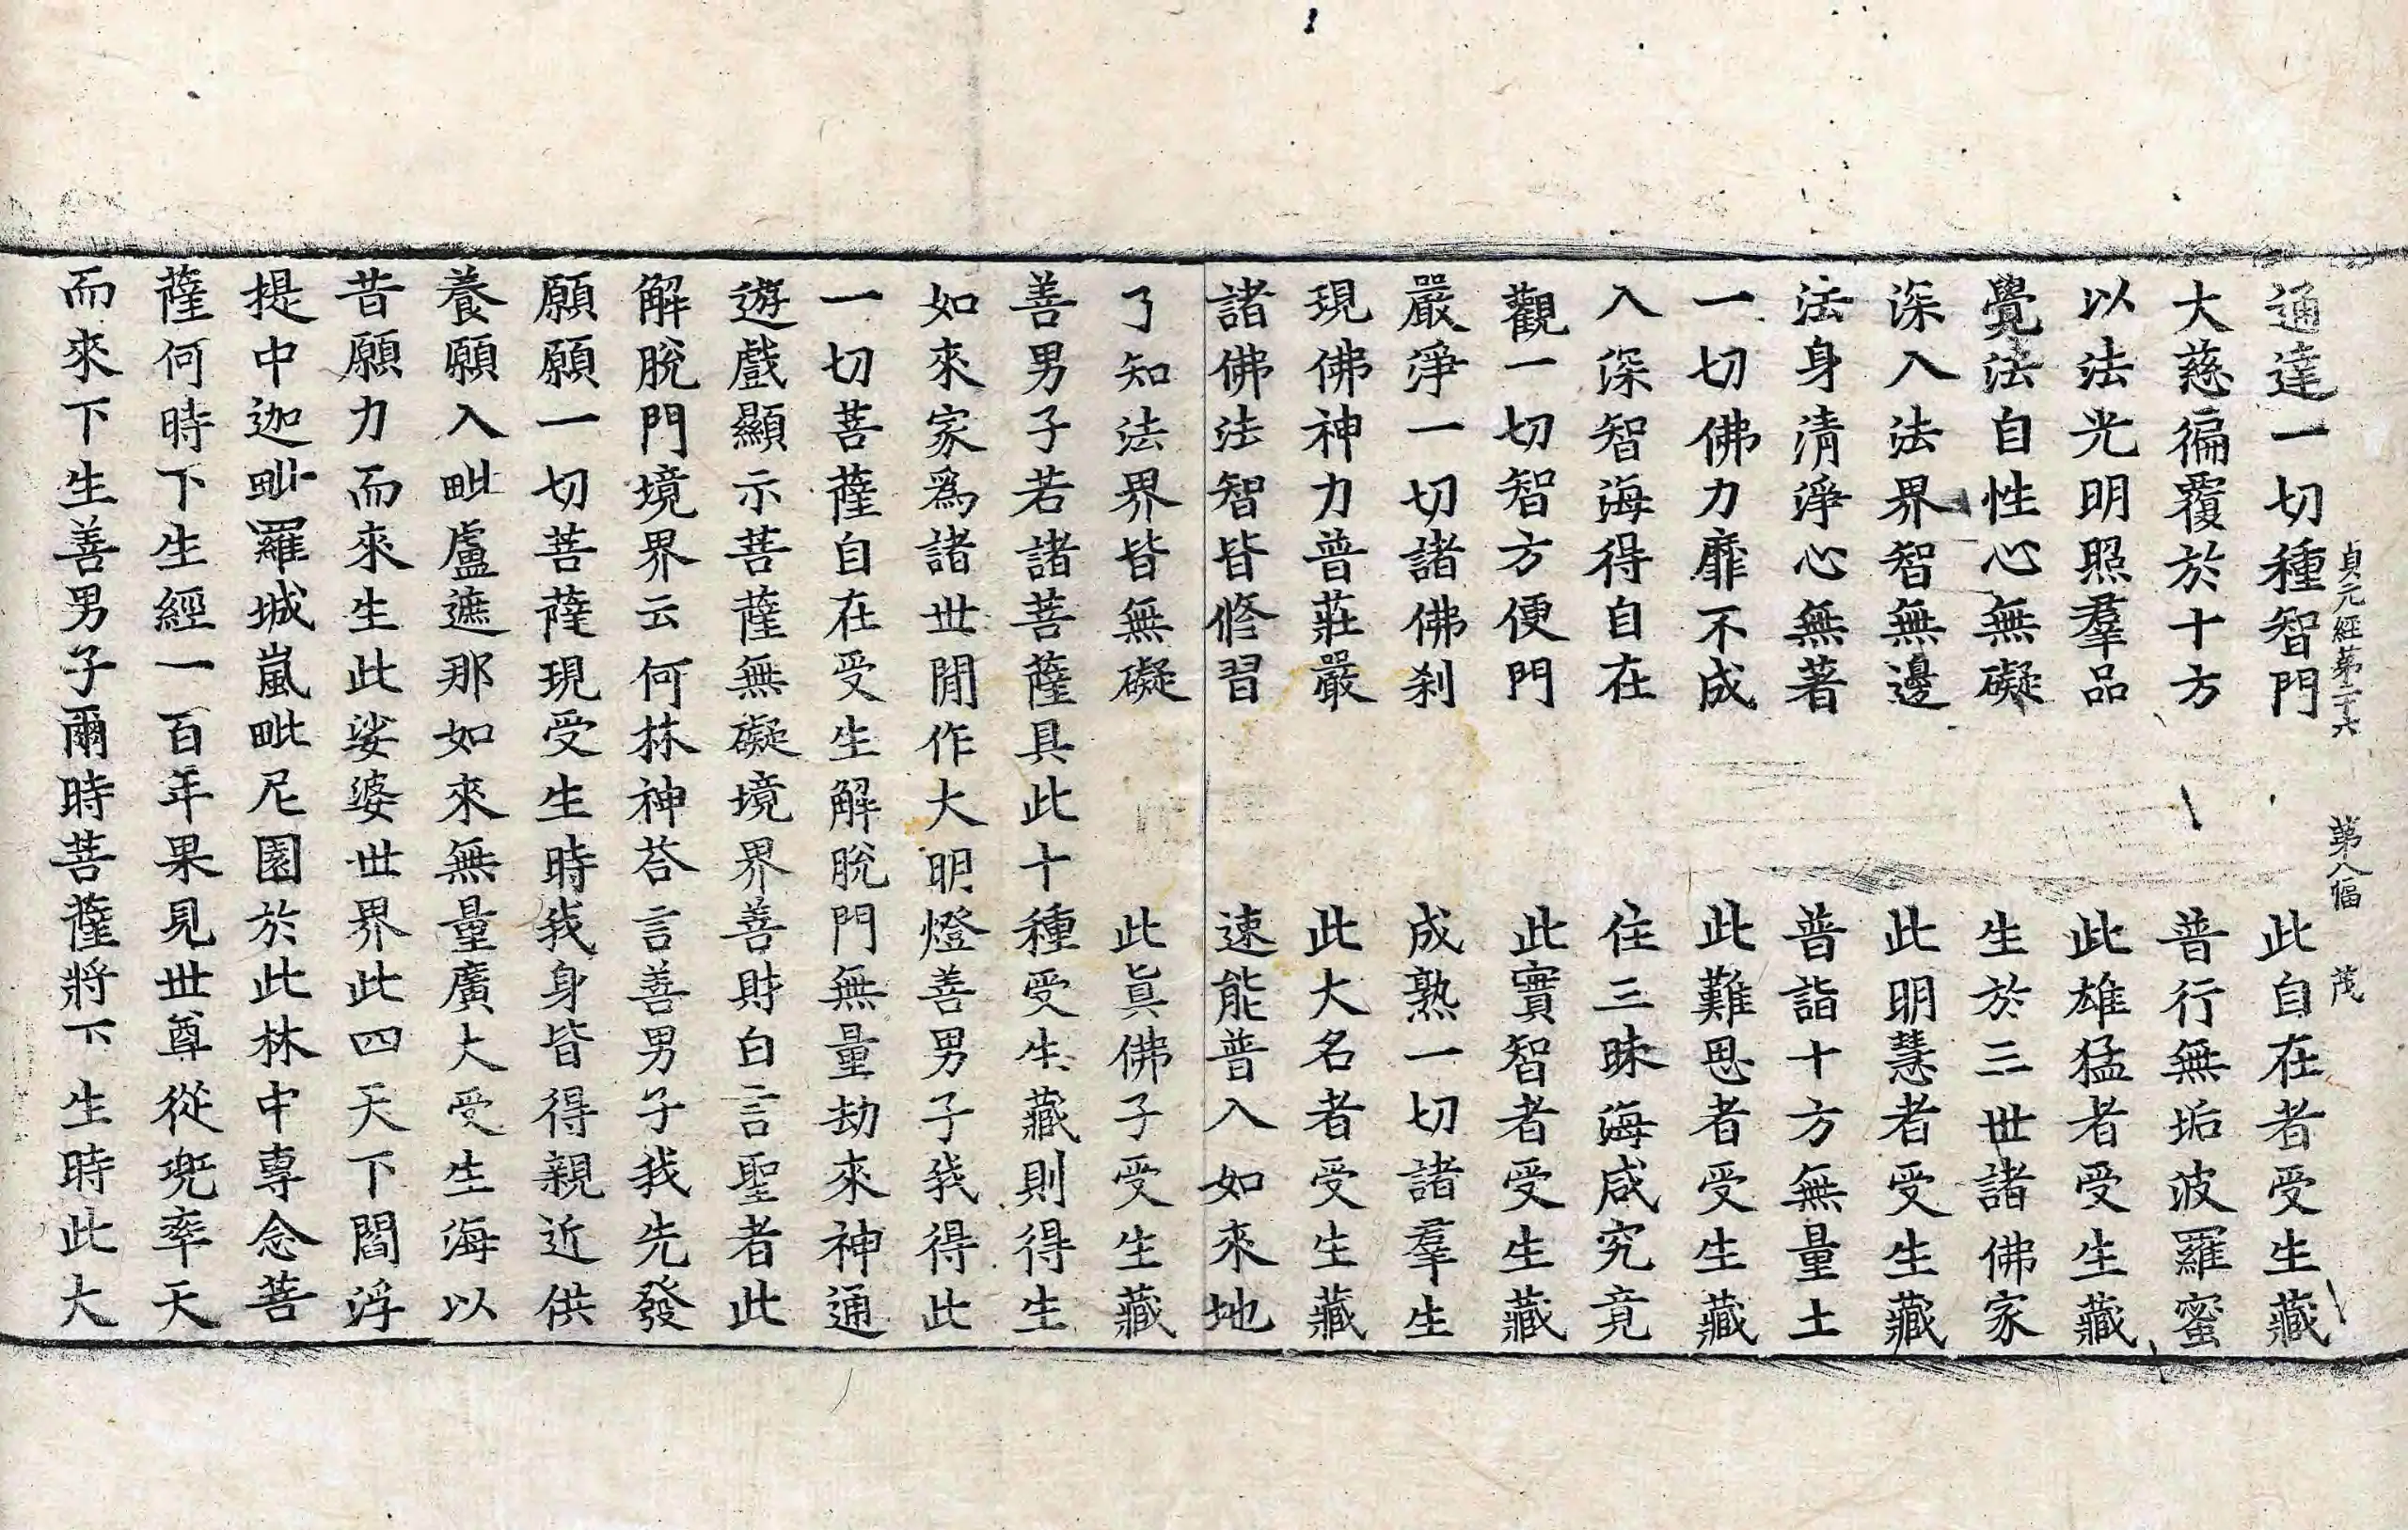 貞元經第二十六　第八幅　茂
通達一切種智門　此自在者受生藏
大慈徧覆於十方　普行無垢波羅蜜
以法光明照羣品　此雄猛者受生藏
覺法自性心無礙　生於三世諸佛家
深入法界智無邊　此明慧者受生藏
法身清淨心無著　普詣十方無量土
一切佛力靡不成　此難思者受生藏
入深智海得自在　住三昧海咸究竟
觀一切智方便門　此實智者受生藏
嚴淨一切諸佛刹　成熟一切諸羣生
現佛神力普莊嚴　此大名者受生藏
諸佛法智皆修習　速能普入如來地
了知法界皆無礙　此眞佛子受生藏
善男子若諸菩薩具此十種受生藏則得生
如來家爲諸世閒作大明燈善男子我得此
一切菩薩自在受生解脫門無量劫來神通
遊戲顯示菩薩無礙境界善財白言聖者此
解脫門境界云何林神荅言善男子我先發
願願一切菩薩現受生時我身皆得親近供
養願入毗盧遮那如來無量廣大受生海以
昔願力而來生此娑婆世界此四天下閻浮
提中迦毗羅城嵐毗尼園於此林中專念菩
薩何時下生經一百年果見世尊從兜率天
而來下生善男子爾時菩薩將下生時此大